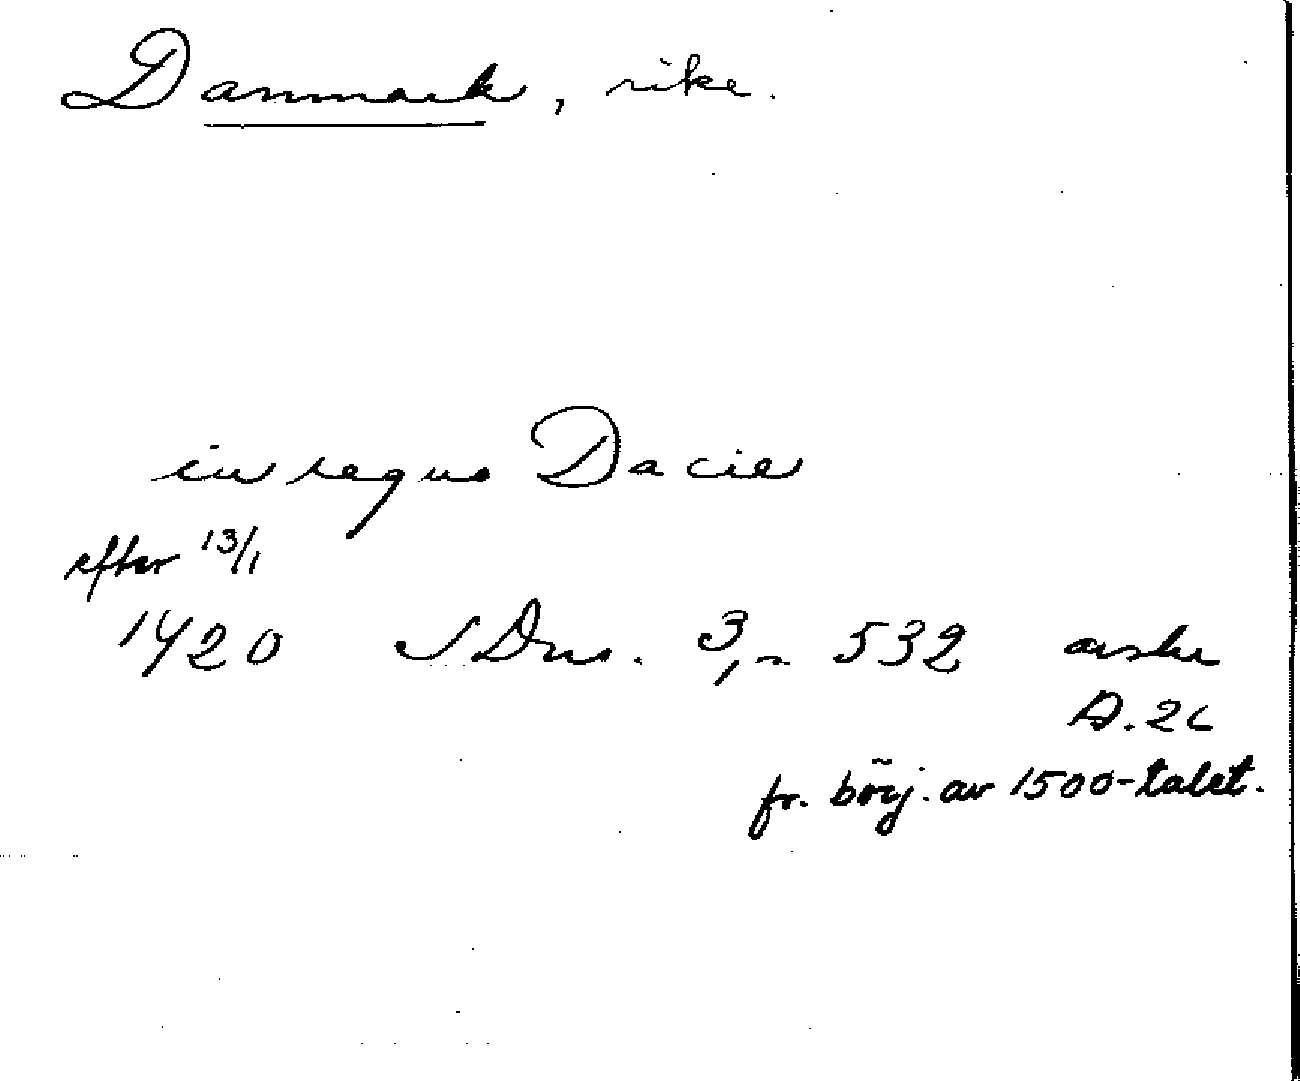 Danmark, rike.
in regno Dacie
efter 13/1
1420 SDns. 3, s 532 avskr
A. 26
fr. börj. av 1500-talet.